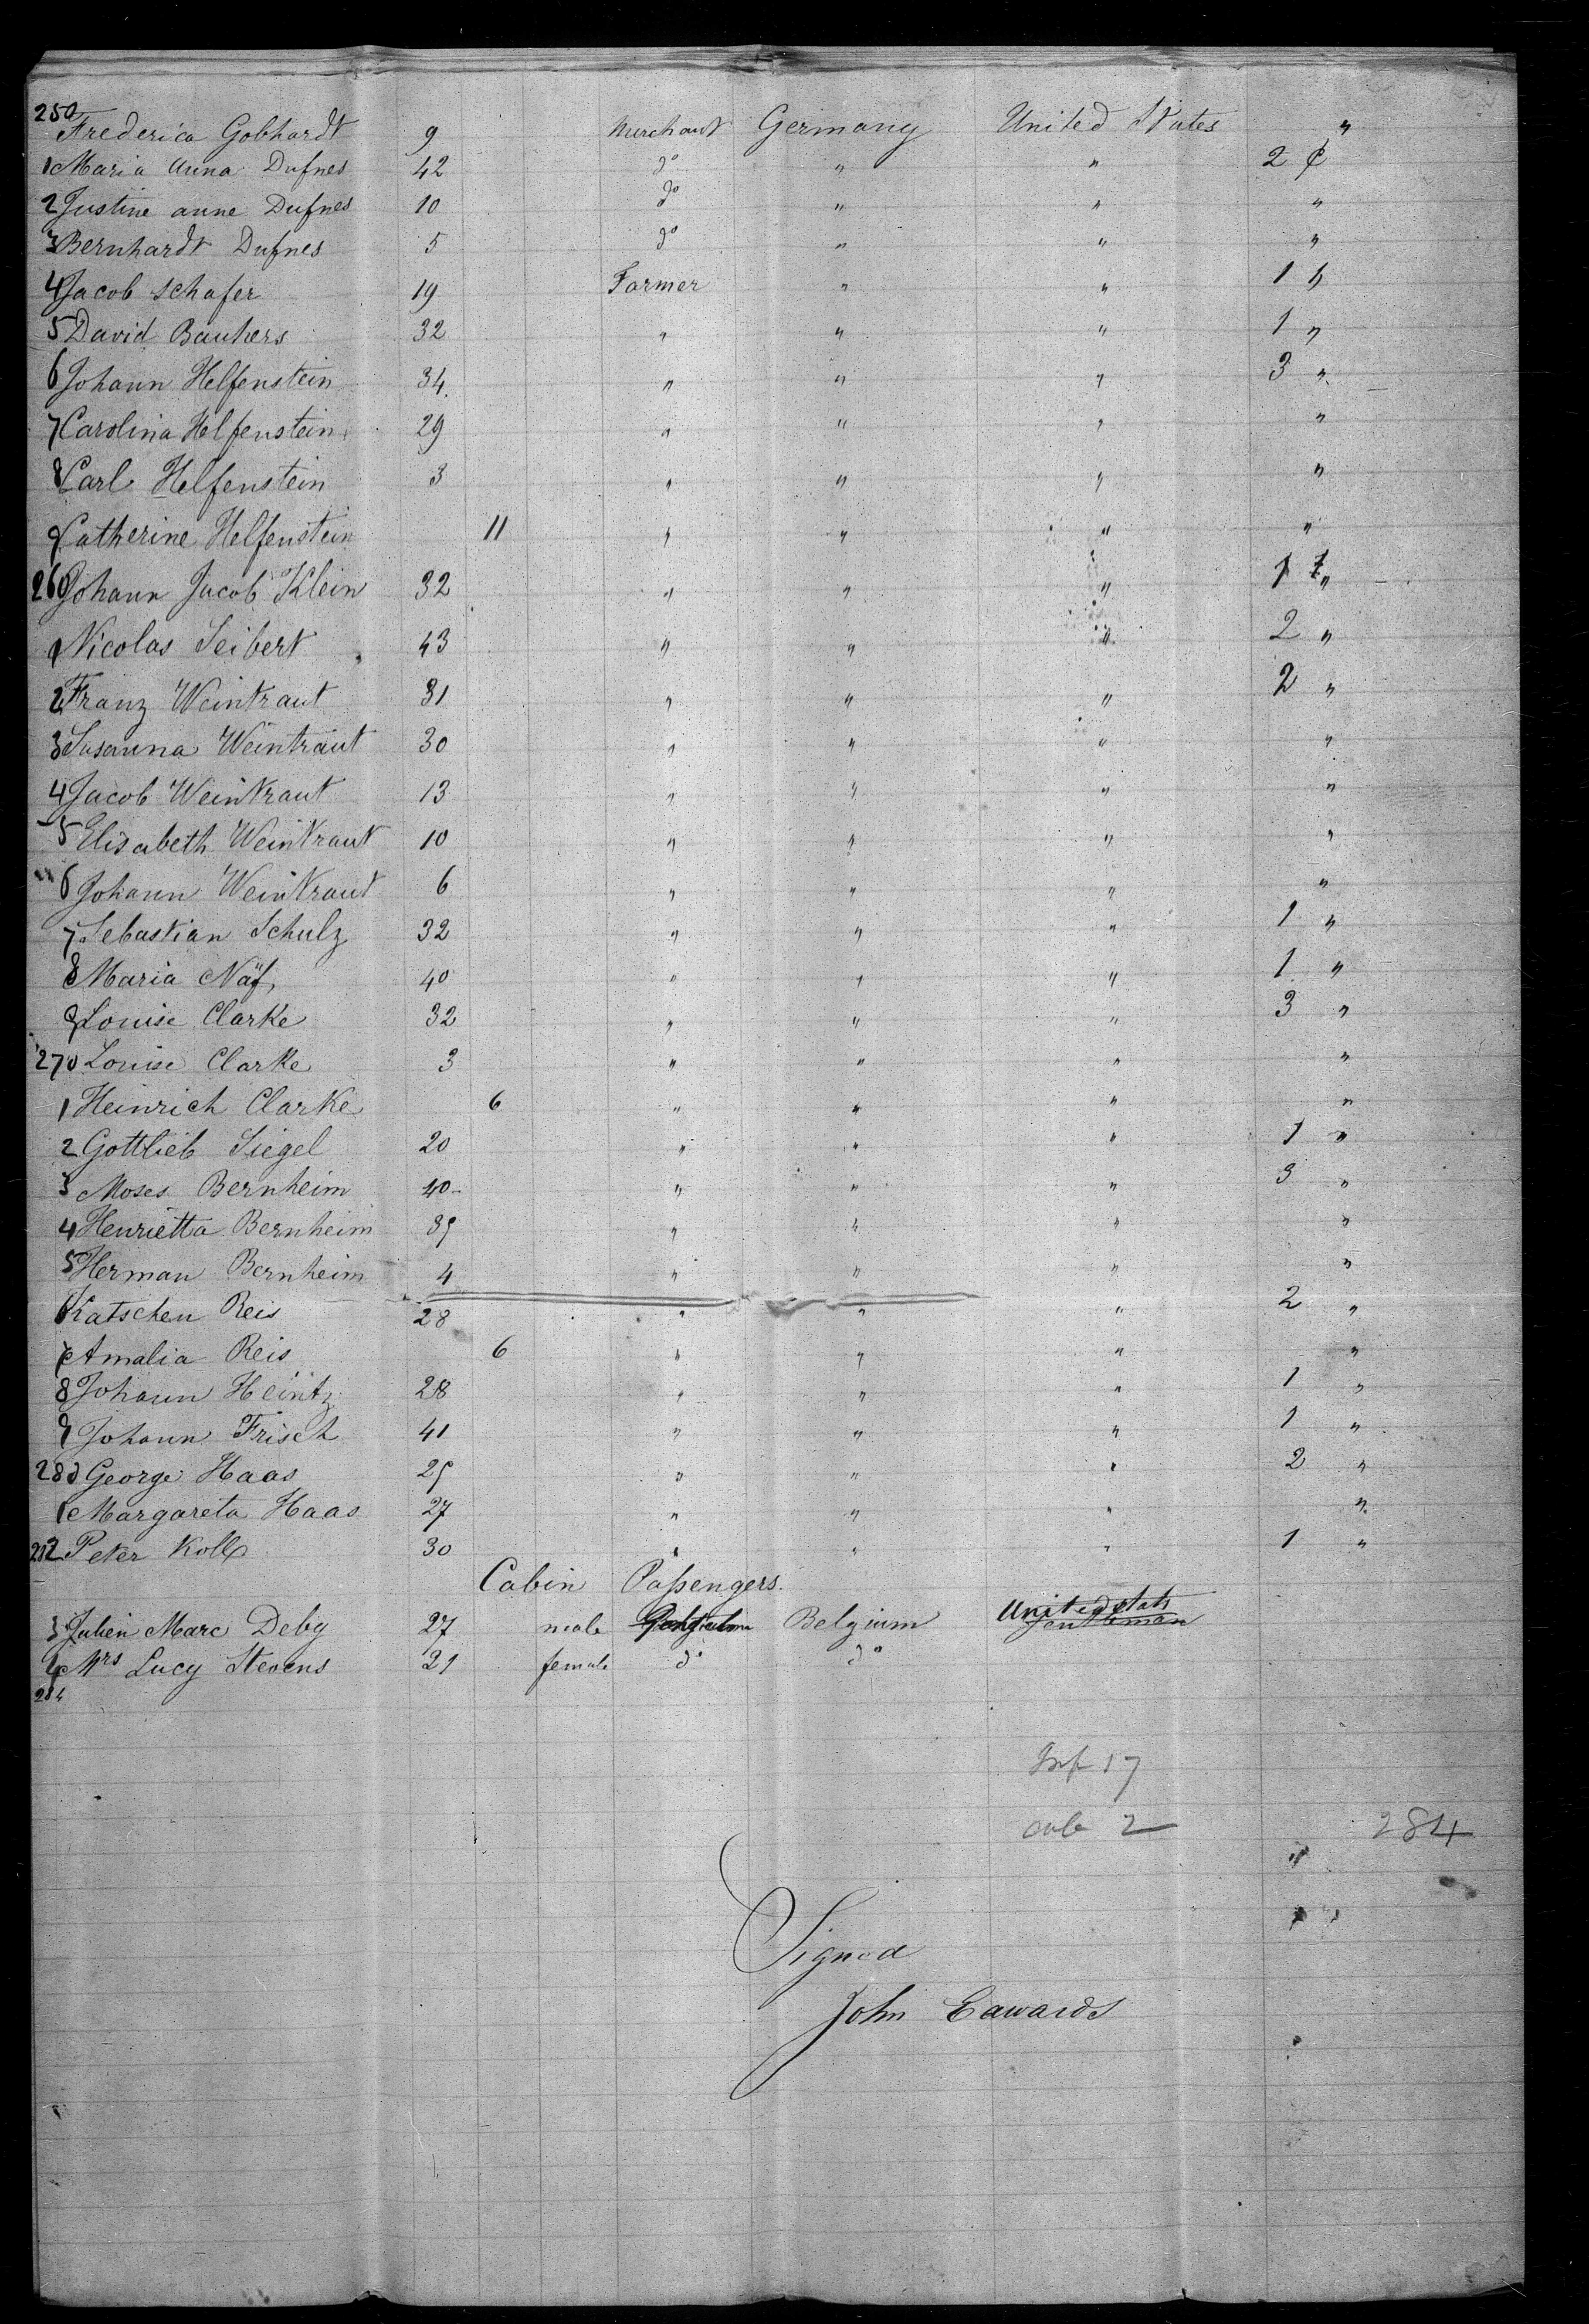 250 Frederica Gobhardt 9 Merchant Germany United States "
1 Maria Anna Dufnes 42 do " " 2 ¢
2 Justine anne Dufnes 10 do " " "
3 Bernhardt Dufnes 5 do " " "
4 Jacob Schafer 19 Farmer " " 1 "
5 David Bauhers 32 " " " 1 "
6 Johann Helfenstein 34. " " " 3 "
7 Carolina Helfenstein 29 " " " "
8 Carl Helfenstein 3 " " " "
9 Catherine Helfenstein 11 " " " "
260 Johann Jacob Klein 32 " " " 1 "
1 Nicolas Seibert 43 " " " 2 "
2 Franz Weintraut 31 " " " 2 "
3 Susanna Weintraut 30 " " " "
4 Jacob Weintraut 13 " " " "
5 Elisabeth Weintraut 10 " " " "
6 Johann Weintraut 6 " " " "
7 Sebastian Schulz 32 " " " 1 "
8 Maria Näf 40 " " " 1 "
9 Louise Clarke 32 " " " 3 "
270 Louise Clarke 3 " " " "
1 Heinrich Clarke 6 " " " "
2 Gottlieb Siegel 20 " " " 1 "
3 Moses Bernheim 40 " " " 3 "
4 Henrietta Bernheim 35 " " " "
5 Herman Bernheim 4 " " " "
6 Katschen Reis 28 " " " 2 "
7 Amalia Reis 6 " " " "
8 Johann Heintz 28 " " " 1 "
9 Johann Frisch 41 " " " 1 "
280 George Haas 25 " " " 2 "
1 Margareta Haas 27 " " " "
282 Peter Kolb 30 " " " 1 "
Cabin Passengers.
3 Julien Marc Deby 27 male Belgium United States Gentleman
4 Mrs Lucy Stevens 21 female do do
284
Inf 17
cab 2 284
Signed
John Edwards